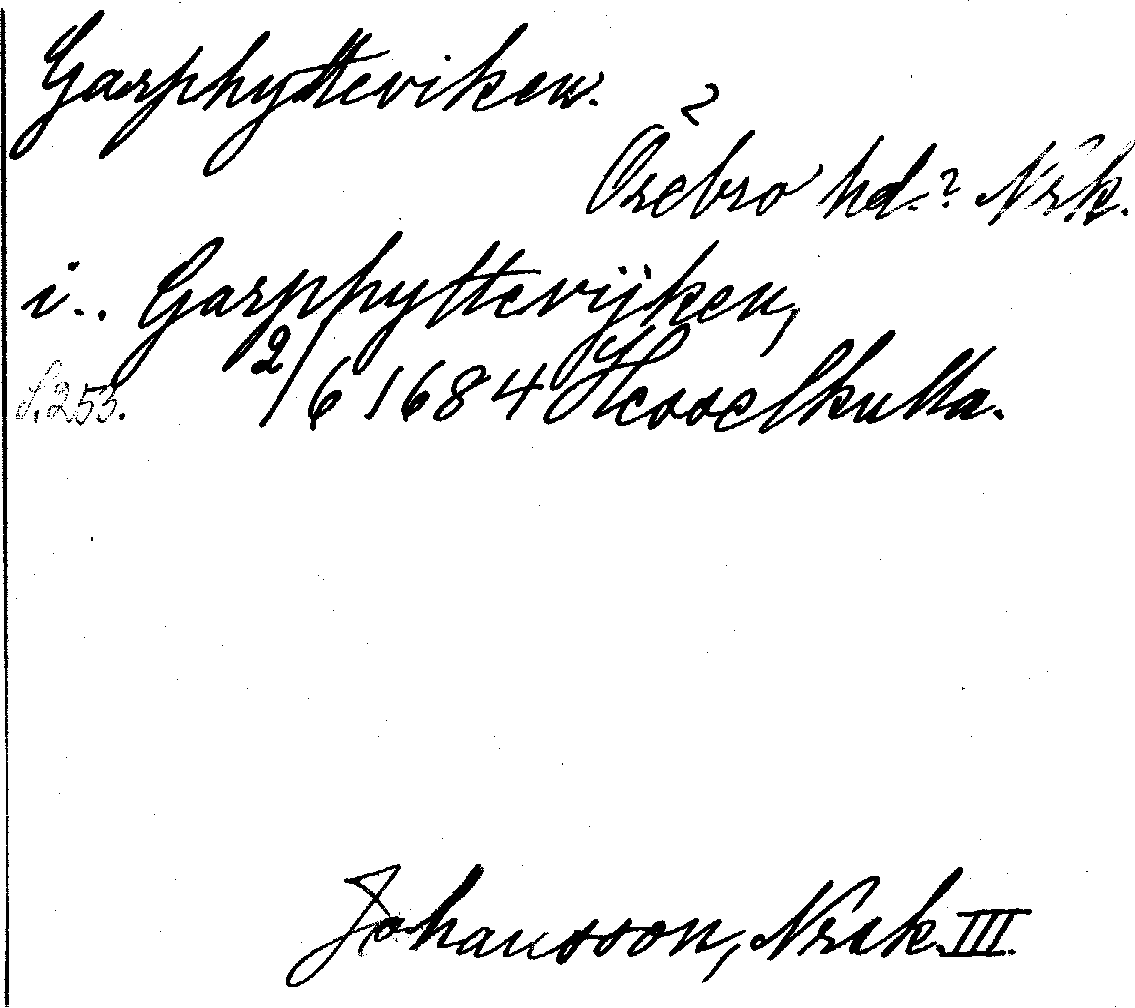 Garphytteviken.
?
Örebro hd.? Nrk.
i.. Garphyttevijken,
s. 253. 2/6 1684 Hesselkulla.
Johansson, Nrk. III.